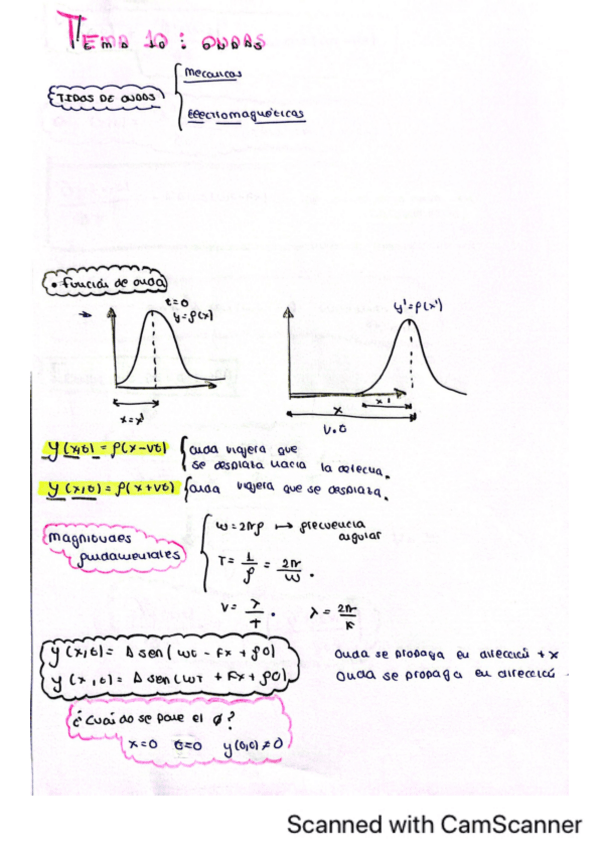 Tema 10: ondas
TIPOS DE ONDAS
mecanicas
Electromagnéticas
• función de onda
t=0
y=f(x)
y'=f(x')
x=x'
x'
x
v.t
y(x,t) = f(x-vt)
onda viajera que
se desplaza hacia la derecha.
y(x,t) = f(x+vt)
onda viajera que se desplaza.
magnitudes
fundamentales
w=2πf ↦ frecuencia
angular
T= 1/f = 2π/w .
v= λ/T . λ = 2π/k
y(x,t)= A sen(wt - kx + φ0)
Onda se propaga en dirección +x
y(x,t)= A sen(wt + kx + φ0)
Onda se propaga en dirección -
¿Cuándo se pone el φ?
x=0 t=0 y(0,0)≠0
Scanned with CamScanner